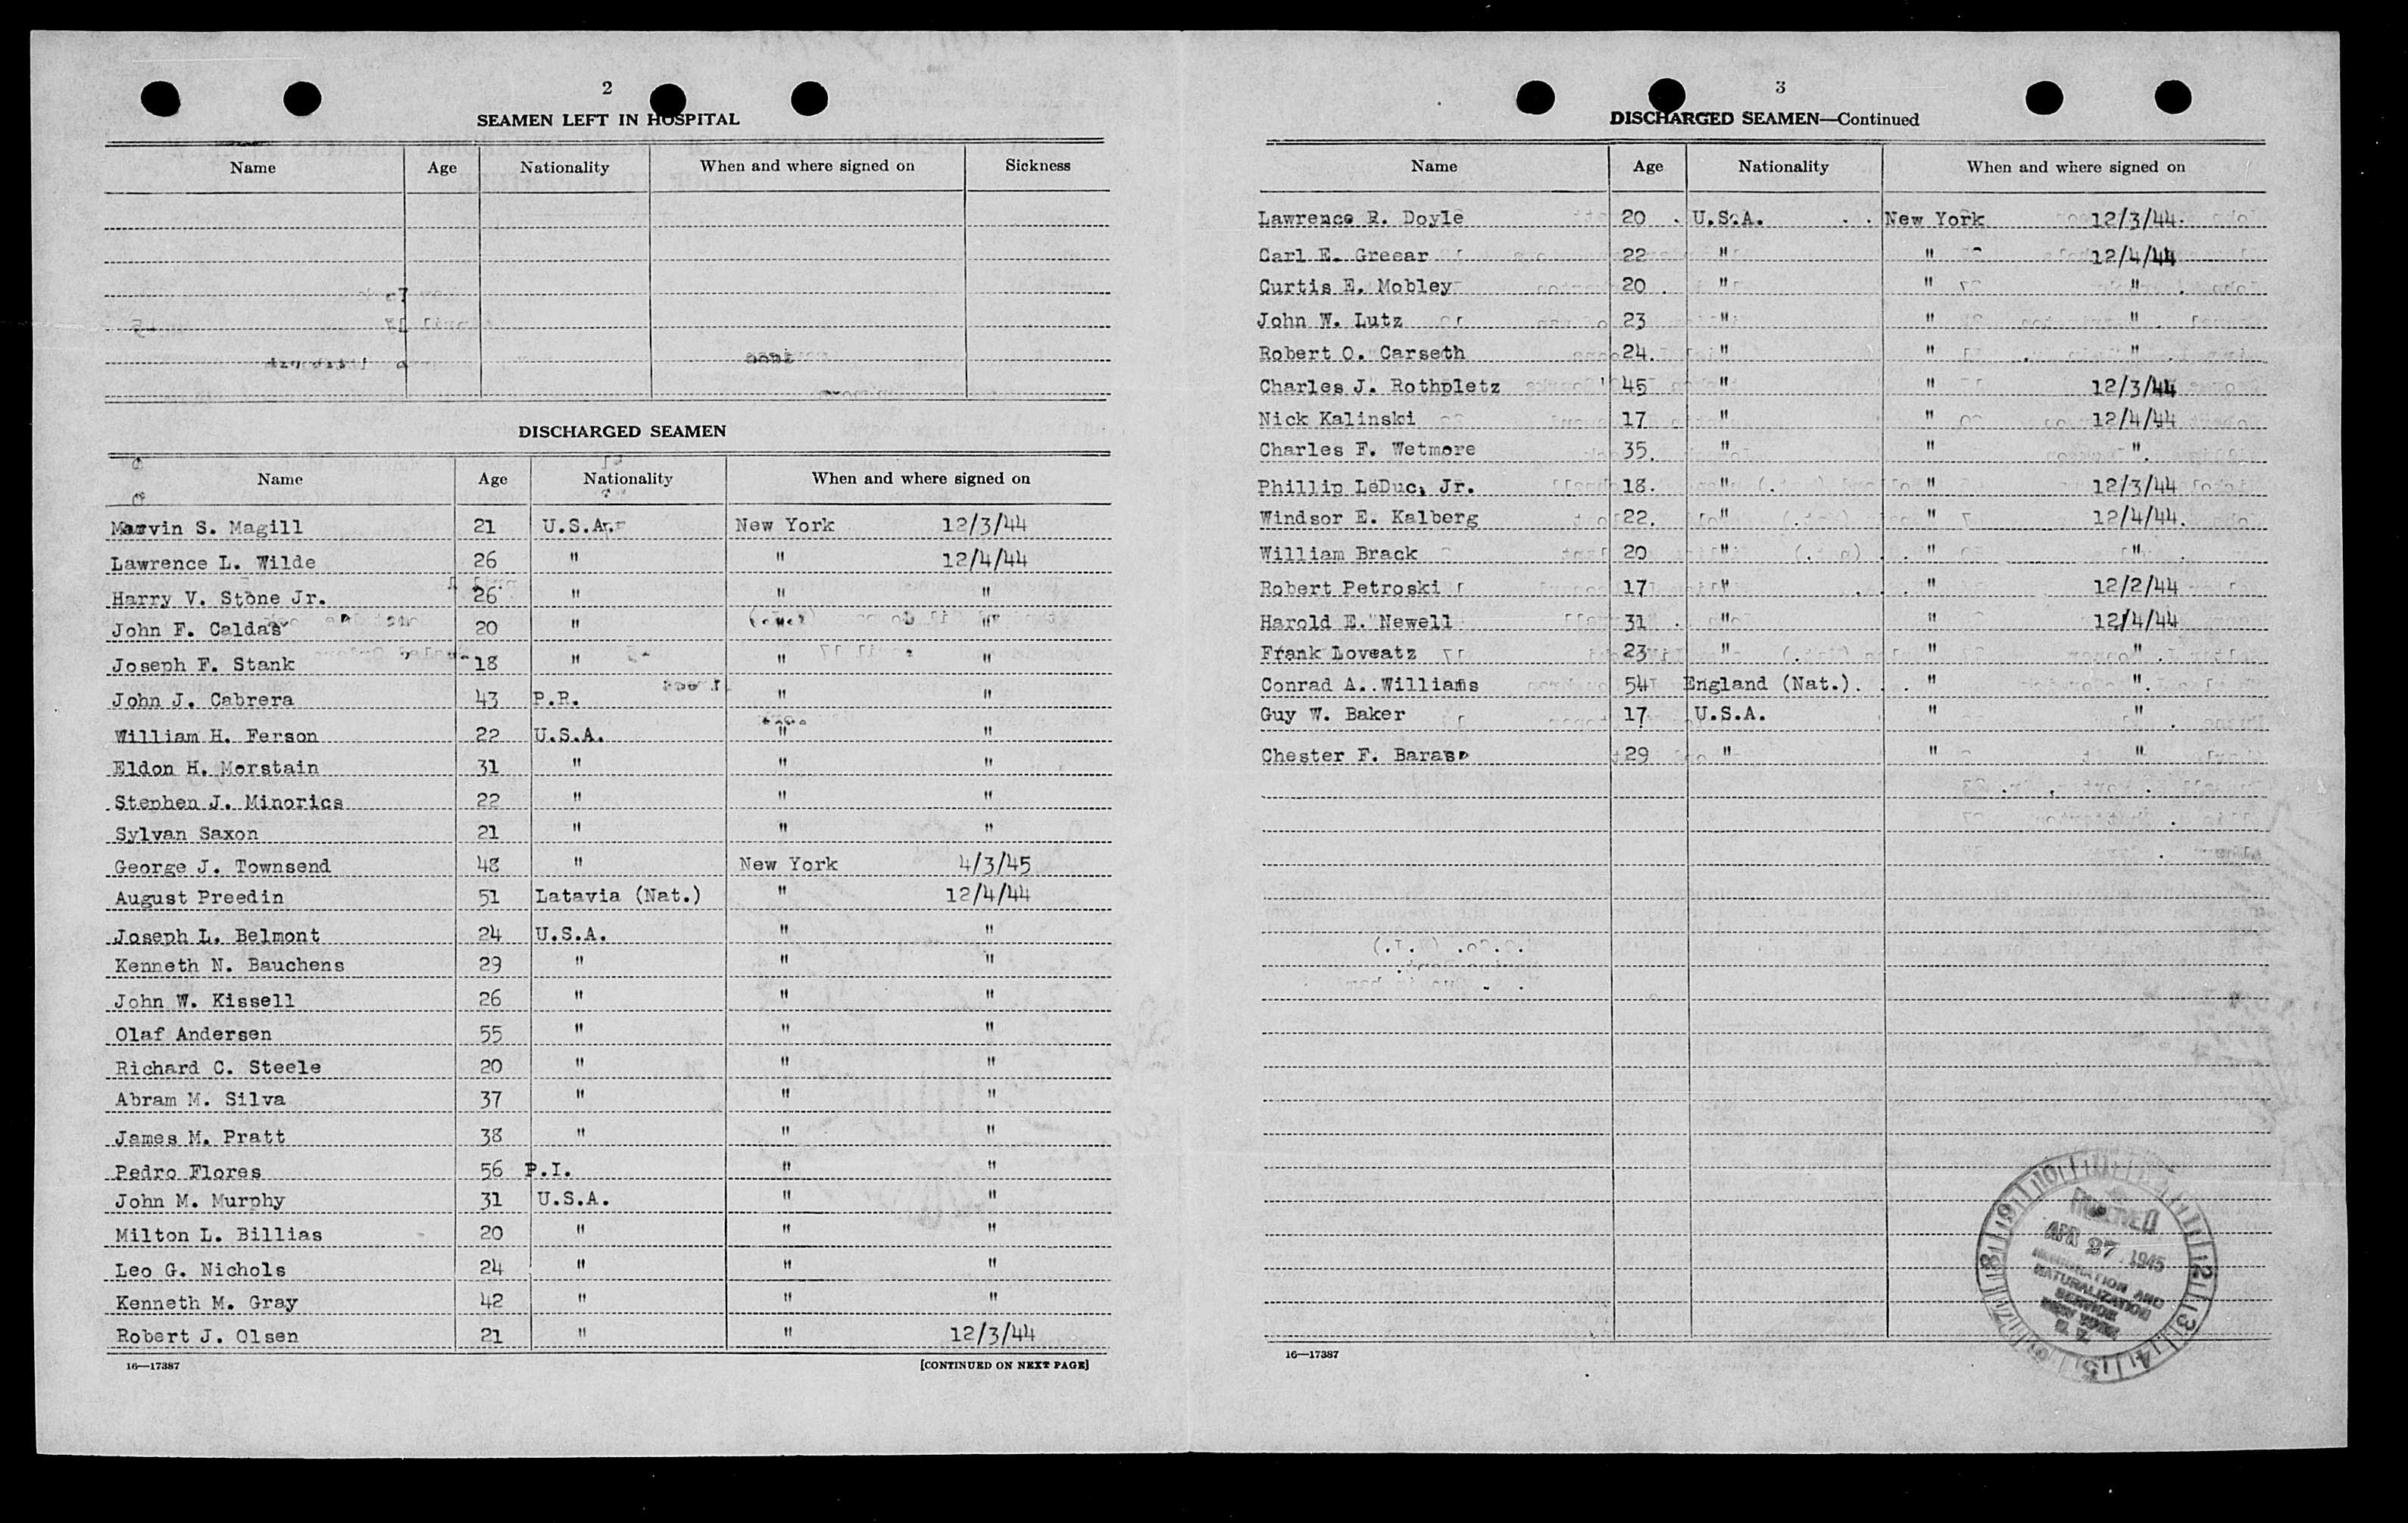 2
SEAMEN LEFT IN HOSPITAL
Name Age Nationality When and where signed on Sickness
DISCHARGED SEAMEN
Name Age Nationality When and where signed on
Marvin S. Magill 21 U.S.A. New York 12/3/44
Lawrence L. Wilde 26 " " 12/4/44
Harry V. Stone Jr. 26 " " "
John F. Caldas 20 " "
Joseph F. Stank 18 " " "
John J. Cabrera 43 P.R. " "
William H. Ferson 22 U.S.A. " "
Eldon H. Morstain 31 " " "
Stephen J. Minorics 22 " " "
Sylvan Saxon 21 " " "
George J. Townsend 48 " New York 4/3/45
August Preedin 51 Latavia (Nat.) " 12/4/44
Joseph L. Belmont 24 U.S.A. " "
Kenneth N. Bauchens 29 " " "
John W. Kissell 26 " " "
Olaf Andersen 55 " " "
Richard C. Steele 20 " " "
Abram M. Silva 37 " " "
James M. Pratt 38 " " "
Pedro Flores 56 P.I. " "
John M. Murphy 31 U.S.A. " "
Milton L. Billias 20 " " "
Leo G. Nichols 24 " " "
Kenneth M. Gray 42 " " "
Robert J. Olsen 21 " " 12/3/44
16—17387 [CONTINUED ON NEXT PAGE]
3
DISCHARGED SEAMEN—Continued
Name Age Nationality When and where signed on
Lawrence R. Doyle 20 U.S.A. New York 12/3/44
Carl E. Greear 22 " " 12/4/44
Curtis E. Mobley 20 " " "
John W. Lutz 23 " " "
Robert O. Carseth 24 " " "
Charles J. Rothpletz 45 " " 12/3/44
Nick Kalinski 17 " " 12/4/44
Charles F. Wetmore 35 " " "
Phillip LeDuc, Jr. 18 " " 12/3/44
Windsor E. Kalberg 22 " " 12/4/44
William Brack 20 " " "
Robert Petroski 17 " " 12/2/44
Harold E. Newell 31 " " 12/4/44
Frank Loveatz 23 " " "
Conrad A. Williams 54 England (Nat.) " "
Guy W. Baker 17 U.S.A. " "
Chester F. 29 " " "
16—17387
APR 27 1945
IMMIGRATION AND
NATURALIZATION
SERVICE
NEW YORK
N. Y.